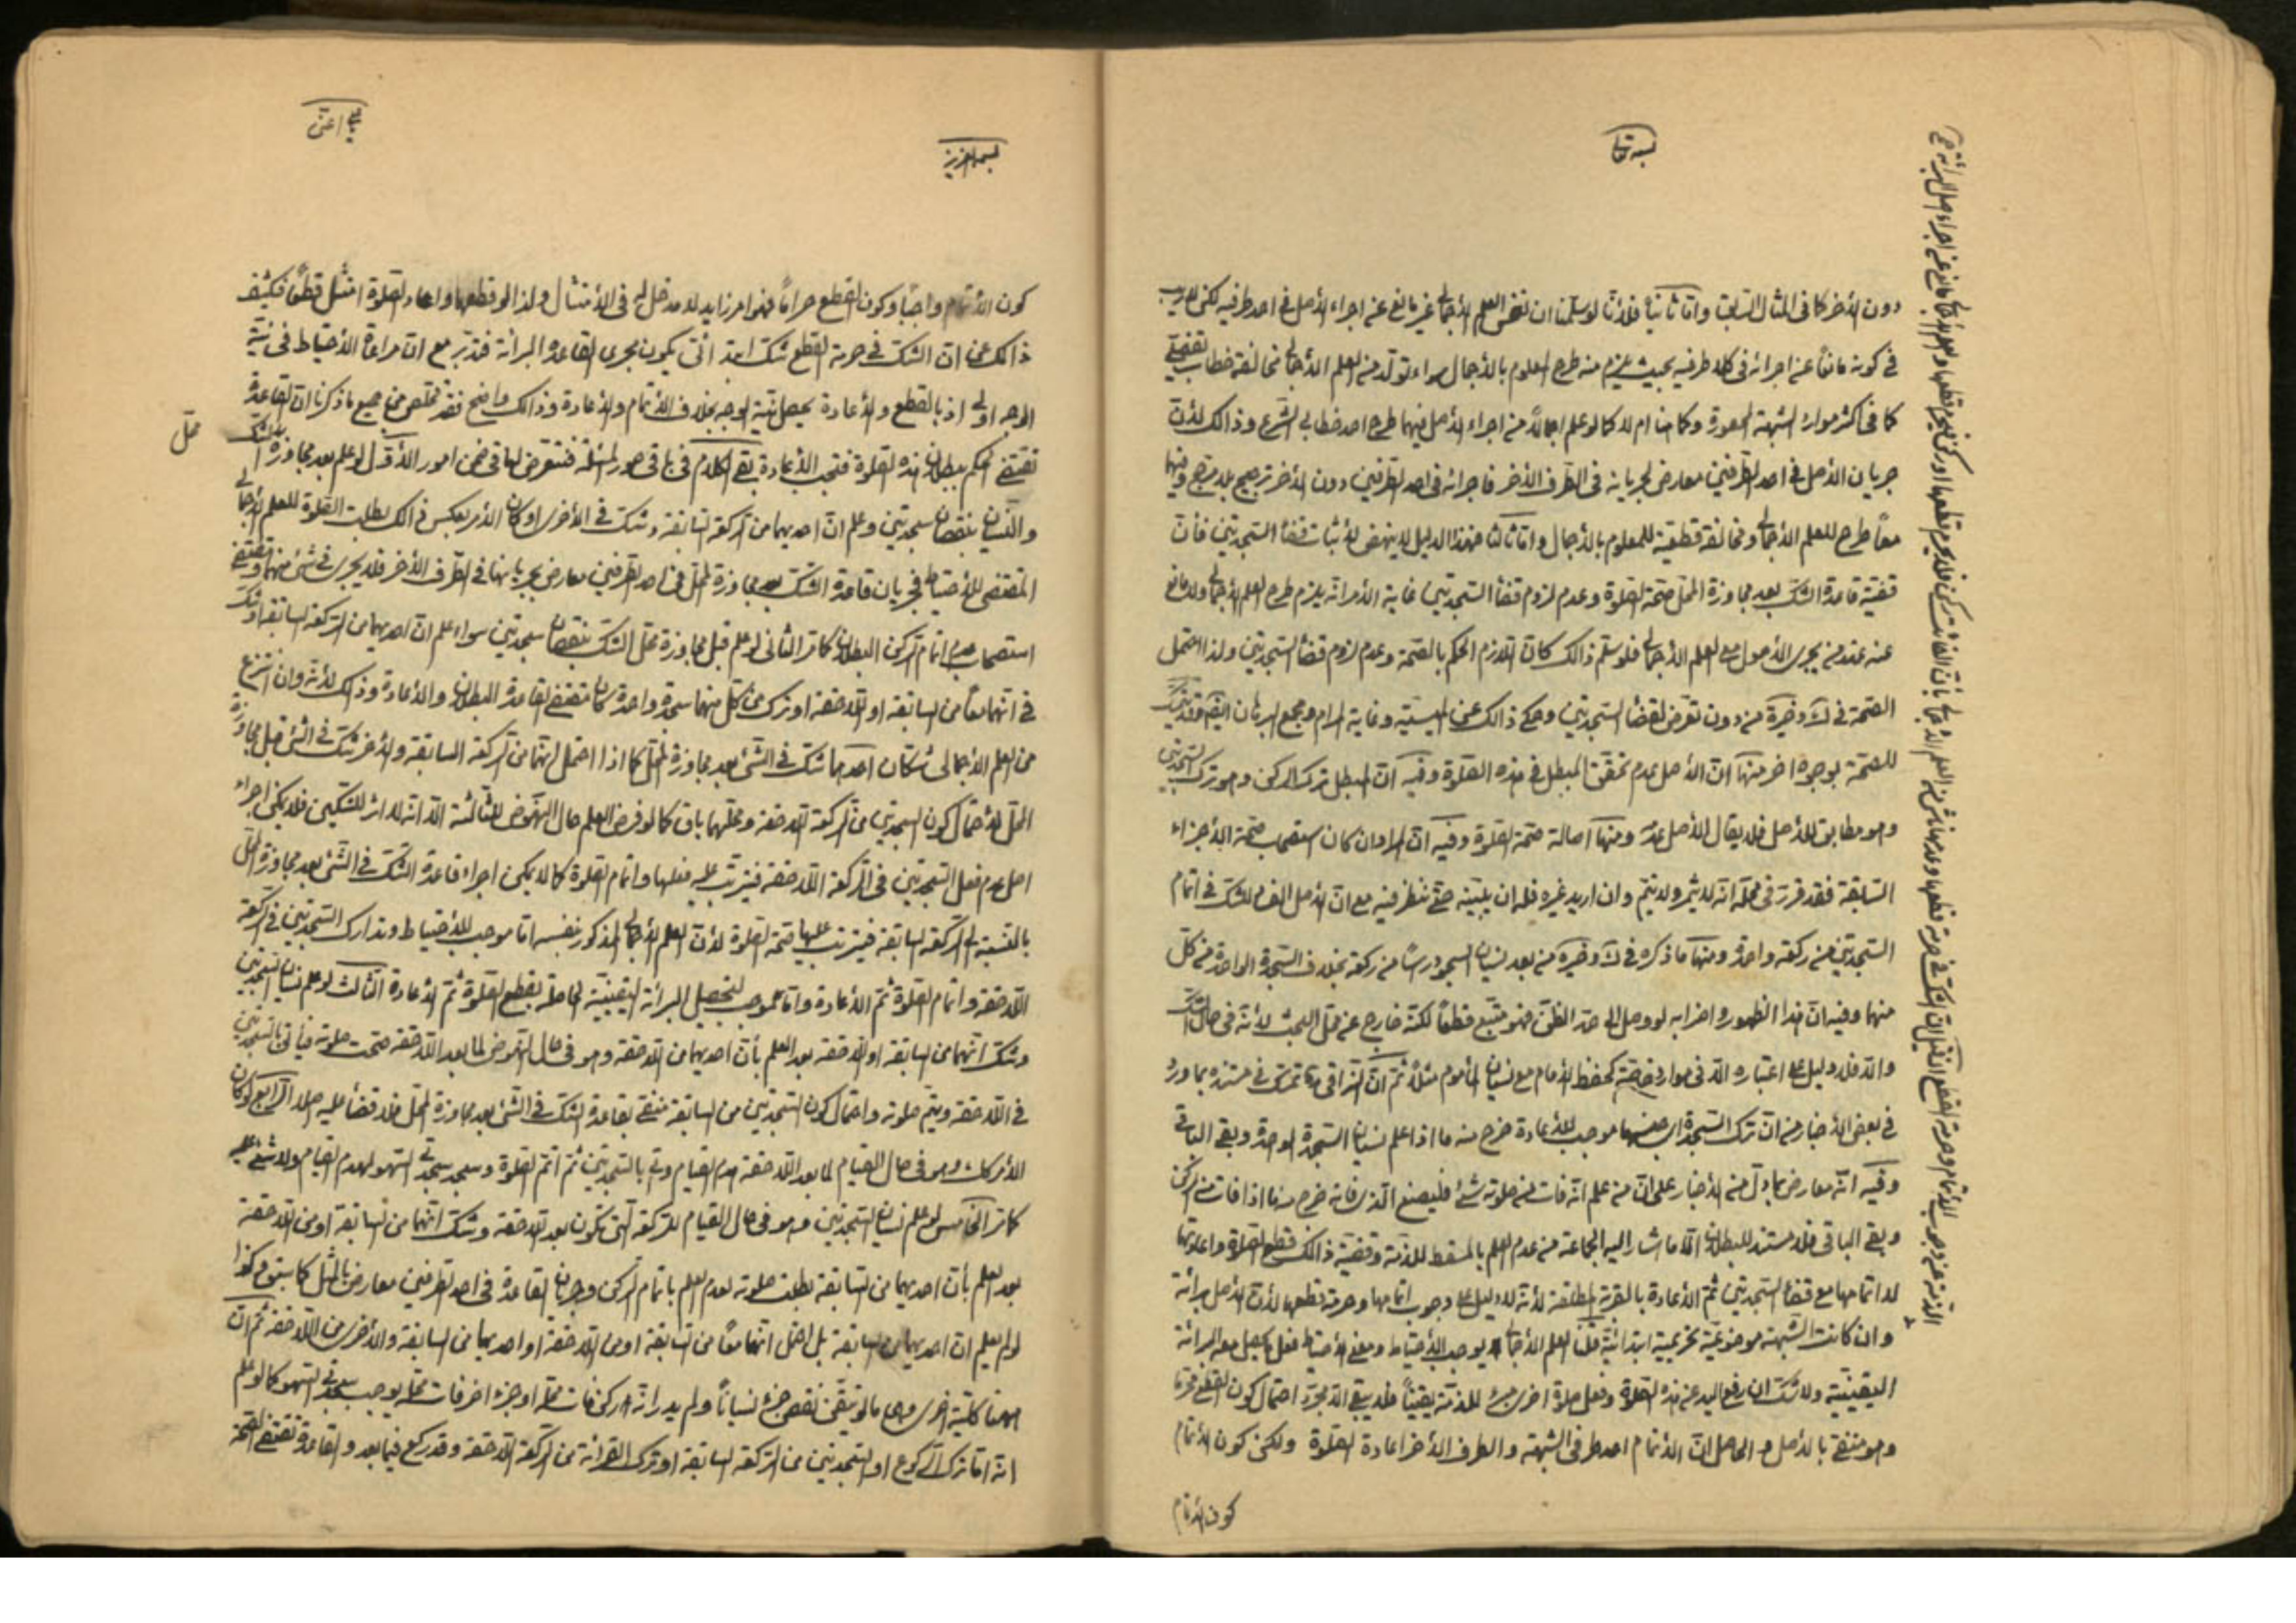 بسمه تعالی
دون الأخر كما فی المثال السابق واما ثانیا فلأنا لو سلمنا ان نفس العلم الأجمالی غیر مانع عن اجراء الأصل فی احد طرفیه لكن لا ریب
فی كونه مانعا عن اجرائه فی كلا طرفیه بحیث یلزم منه طرح المعلوم بالأجمال سواء تولد من العلم الأجمالی مخالفة خطاب تفصیلی
كما فی اكثر موارد الشبهة المحصورة وكما هنا ام لا كما لو علم اجمالا من اجراء الأصل فیهما طرح احد خطابی الشرع وذالك لأن
جریان الأصل فی احد الطرفین معارض لجریانه فی الطرف الأخر فاجرائه فی احد الطرفین دون الأخر ترجیح بلا مرجح وفیهما
معا طرح للعلم الأجمالی ومخالفة قطعیة للمعلوم بالأجمال واما ثالثا فهذا الدلیل لا ینهض لأثبات قضأ السجدتین فأن
قضیة قاعدة الشك بعد مجاوزة المحل صحة الصلوة وعدم لزوم قضأ السجدتین غایة الأمر انه یلزم طرح العلم الأجمالی ولا مانع
عنه عند من یجری الأصول مع العلم الأجمالی فلو سلم ذالك كان اللازم الحكم بالصحة وعدم لزوم قضأ السجدتین ولذا احتمل
الصحة فی ك وخیرة من دون تعرض لقضأ السجدتین وحكی ذالك عن وغایة المرام ومجمع البرهان ایضا وقد یتمسك
للصحة بوجوه اخر منها ان الأصل عدم تحقق المبطل فی هذه الصلوة وفیه ان المبطل ترك الركن وهو ترك السجدتین
وهو مطابق للأصل فلا یقال الأصل عدمه ومنها اصالة صحة الصلوة وفیه ان المراد ان كان استصحاب صحة الأجزاء
السابقة فقد قرر فی محله انه لا یثمر ولا یتم وان ارید غیره فله ان یبینه حتی ننظر فیه مع ان الأصل للشك فی اتمام
السجدتین من ركعة واحدة ومنها ما ذكره فی ك وخیره من بعد نسیان السجود رسا من ركعة بخلاف السجدة الواحدة من كل
منهما وفیه ان هذا الظهور واضرابه لو وصل الی حد الظن فهو متبع قطعا لكنه خارج عن محل البحث لأنه فی حال الشك
والا فلا دلیل علی اعتباره الا فی موارد خاصة كحفظ الأمام مع نسیان المأموم مثلا ثم ان النراقی ره تمسك فی مستنده بما ورد
فی بعض الأخبار من ان ترك السجدة موجب للأعادة خرج منه ما اذا علم نسیان السجدة الواحدة وبقی الباقی
وفیه انه معارض بما دل من الأخبار علی ان من علم انه فات من صلوته شئ فلیصنع الذی فاته خرج منها اذا فات من الركن
وبقی الباقی فلا مستند للبطلان الا ما اشار الیه الجماعة من عدم العلم بالمسقط للذمة وقضیة ذالك قطع الصلوة واعادتها
لا اتمامها مع قضأ السجدتین ثم الأعادة بالقربة المطلقة لأنه لا دلیل علی وجوب اتمامها وحرمة قطعها لأن الأصل برائة
وان كانت الشبهة موضوعیة تحریمیة ابتدائیة قلنا العلم الأجمالی یوجب الأحتیاط ومعنی الأحتیاط فعل ما یحصل معه البرائة
الیقینیة ولا شك ان رفع الید عن هذه الصلوة وفعل صلوة اخری مبرء للذمة یقینا فلا یبقی الا مجرد احتمال كون القطع محرما
وهو منتفی بالأصل والحاصل ان الأتمام احد طرفی الشبهة والطرف الأخر اعادة الصلوة ولكن كون الأتمام
كون الأتمام
بسمه العزیز
كون الأتمام واجبا وكون القطع حراما فهو امر زاید لا مدخل له فی الأمتثال ولذا لو قطعها واعاد الصلوة امتثل قطعا فكشف
ذالك عن ان الشك فی حرمة القطع شك ابتدائی یكون مجری لقاعدة البرائة فتدبر مع ان مراعاة الأحتیاط فی نیة
الوجه اولی اذ بالقطع والأعادة یحصل نیة الوجه بخلاف الأتمام والأعادة وذالك واضح فقد تخلص من جمیع ما ذكرنا ان القاعدة
تقتضی الحكم ببطلان هذه الصلوة فتجب الأعادة بقی الكلام فی باقی صور المسئلة فنتعرض لها فی ضمن امور الأول لو علم بعد مجاوزة محل الشك
والنسیان بنقصان سجدتین وعلم ان احدیهما من الركعة السابقة وشك فی الأخری او كان الأمر بعكس ذالك بطلت الصلوة للعلم الأجمالی
المقتضی للأحتیاط فجریان قاعدة الشك بعد مجاوزة المحل فی احد الطرفین معارض بجریانها فی الطرف الأخر فلا یجری فی شئ منهما وتقتضی
استصحاب عدم اتمام الركن البطلان كما مر الثانی لو علم قبل مجاوزة محل الشك بنقصان سجدتین سواء علم ان احدیهما من الركعة السابقة او شك
فی انهما معا من السابقة او اللاحقة او ترك من كل منهما سجدة واحدة كان مقتضی القاعدة البطلان والأعادة وذالك لأنه وان انتزع
من العلم الأجمالی شكان احدهما شك فی الشئ بعد مجاوزة المحل كما اذا احتمل انهما من الركعة السابقة والأخر شك فی الشئ قبل مجاوزة
المحل لأحتمال كون السجدتین من الركعة اللاحقة ومحلهما باق كما لو فرض العلم حال النهوض للثالثة الا انه لا اثر للشكین فلا یمكن اجراء
اصل عدم فعل السجدتین فی الركعة اللاحقة فیترتب علیه فعلها واتمام الصلوة كما لا یمكن اجراء قاعدة الشك فی الشئ بعد مجاوزة المحل
بالنسبة الی الركعة السابقة فیترتب علیها صحة الصلوة لأن العلم الأجمالی المذكور بنفسه اما موجب للأحتیاط وتدارك السجدتین فی الركعة
اللاحقة واتمام الصلوة ثم الأعادة واما موجب لتحصیل البرائة الیقینیة الحاصلة بقطع الصلوة ثم الأعادة الثالث لو علم نسیان السجدتین
وشك انهما من السابقة او اللاحقة بعد العلم بأن احدیهما من اللاحقة وهو فی حال النهوض لما بعد اللاحقة صحت صلوته فیأتی بالسجدتین
فی اللاحقة ویتم صلوته واحتمال كون السجدتین من السابقة منتفی بقاعدة الشك فی الشئ بعد مجاوزة المحل فلا قضأ علیه اصلا الرابع لو كان
الأمر كذالك وهو فی حال القیام لما بعد اللاحقة هدم القیام واتی بالسجدتین ثم اتم الصلوة وسجد سجدتی السهو لهدم القیام ولا شئ علیه
كما مر الخامس لو علم نسیان السجدتین وهو فی حال القیام للركعة التی تكون بعد اللاحقة وشك انهما من السابقة او من اللاحقة
بعد العلم بأن احدیهما من السابقة بطلت صلوته لعدم العلم باتمام الركن وجریان القاعدة فی احد الطرفین معارض بالمثل كما سبق وكذا
لو لم یعلم ان احدیهما من السابقة بل احتمل انهما معا من السابقة او من اللاحقة او احدیهما من السابقة والأخری من اللاحقة ثم ان
ههنا كلیة اخری وهی ما لو تیقن نقص جزء نسیانا ولم یدر انه ركن فات محله او جزء اخر فات محله یوجب سجدتی السهو كما لو علم
انه اما ترك الركوع او السجدتین من الركعة السابقة او ترك القرائة من الركعة اللاحقة وقد ركع فیما بعد والقاعدة تقتضی الصحة
محل